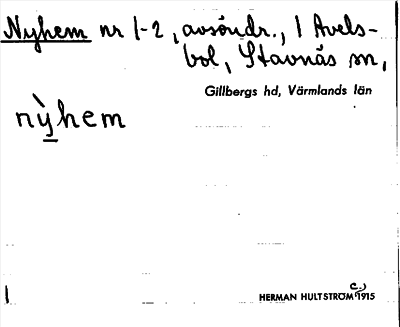 Nyhem nr 1-2, avsöndr., 1 Avels-
bol, Stavnäs sn,
Gillbergs hd, Värmlands län
nỳhem
HERMAN HULTSTRÖM c.) 1915